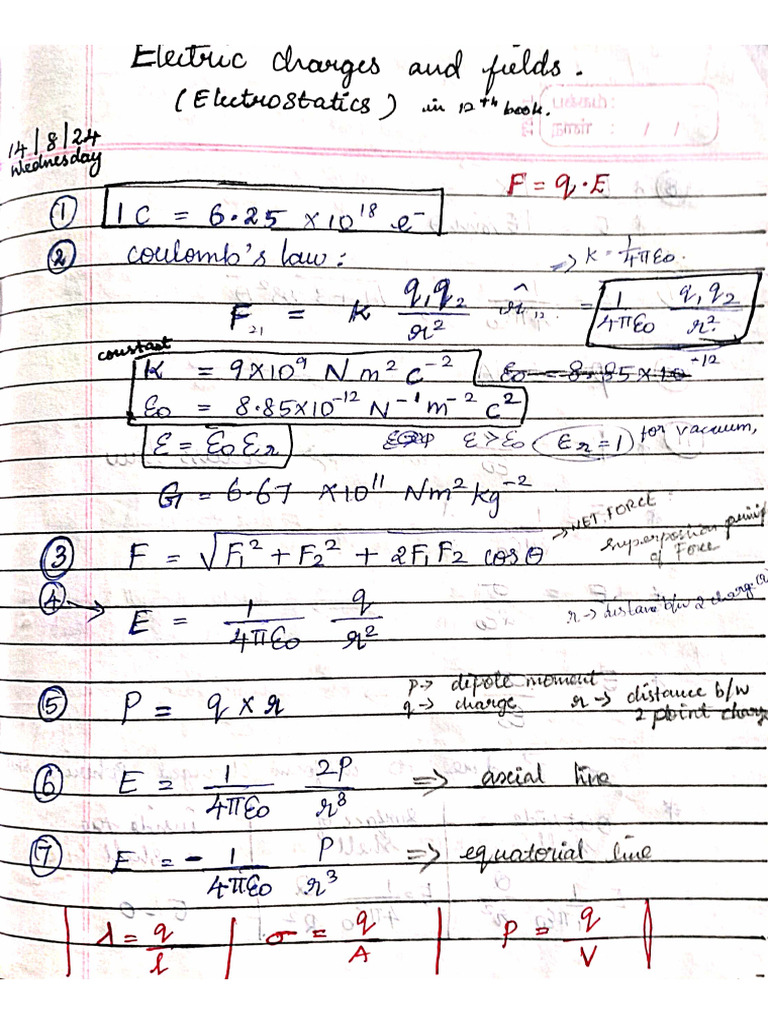 Electric charges and fields.
(Electrostatics) in 12th book.
பக்கம்:
நாள் : / /
14/8/24
Wednesday
F = q·E
① 1 C = 6.25 × 10¹⁸ e⁻
② Coulomb's law:
→ K = 1/4πε₀
F₂₁ = K q₁q₂/r² r̂₁₂ = 1/4πε₀ q₁q₂/r²
constant
K = 9×10⁹ N m² C⁻²
ε₀ = 8.85×10⁻¹²
ε₀ = 8.85×10⁻¹² N⁻¹m⁻² C²
ε = ε₀ εr ε > ε₀ (εr = 1) for vacuum,
G = 6.67 ×10¹¹ Nm²kg⁻²
③ F = √F₁² + F₂² + 2F₁F₂ cosθ → NET FORCE
of Force
④ → E = 1/4πε₀ q/r² r → distance b/w 2 charges
⑤ P = q × r
P → dipole moment
q → charge r → distance b/w
2 point charge
⑥ E = 1/4πε₀ 2P/r³ ⇒ axial line
⑦ E = - 1/4πε₀ P/r³ ⇒ equatorial line
| λ = q/l | σ = q/A | ρ = q/V |